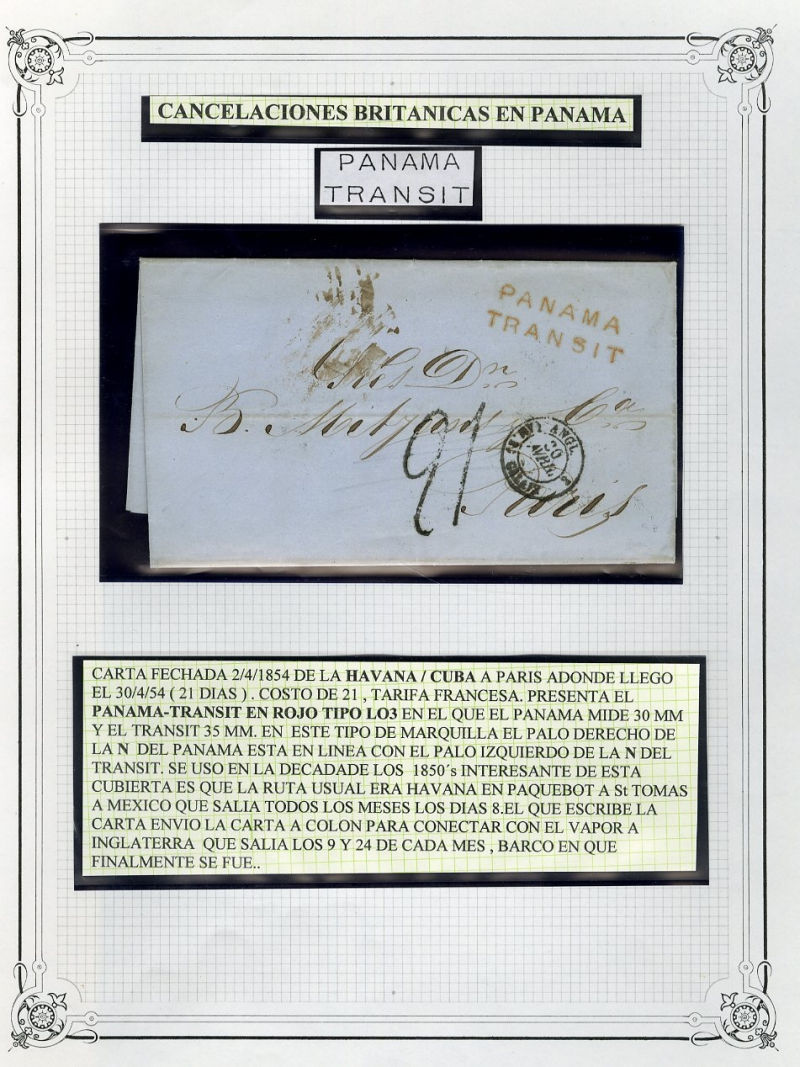 CANCELACIONES BRITANICAS EN PANAMA
PANAMA
TRANSIT
PANAMA
TRANSIT
Dn
B. Ca
21
ANGL.
30
AVRIL
CALAIS
Paris
CARTA FECHADA 2/4/1854 DE LA HAVANA / CUBA A PARIS ADONDE LLEGO
EL 30/4/54 ( 21 DIAS ) . COSTO DE 21 , TARIFA FRANCESA. PRESENTA EL
PANAMA-TRANSIT EN ROJO TIPO LO3 EN EL QUE EL PANAMA MIDE 30 MM
Y EL TRANSIT 35 MM. EN ESTE TIPO DE MARQUILLA EL PALO DERECHO DE
LA N DEL PANAMA ESTA EN LINEA CON EL PALO IZQUIERDO DE LA N DEL
TRANSIT. SE USO EN LA DECADADE LOS 1850´s INTERESANTE DE ESTA
CUBIERTA ES QUE LA RUTA USUAL ERA HAVANA EN PAQUEBOT A St TOMAS
A MEXICO QUE SALIA TODOS LOS MESES LOS DIAS 8.EL QUE ESCRIBE LA
CARTA ENVIO LA CARTA A COLON PARA CONECTAR CON EL VAPOR A
INGLATERRA QUE SALIA LOS 9 Y 24 DE CADA MES , BARCO EN QUE
FINALMENTE SE FUE..